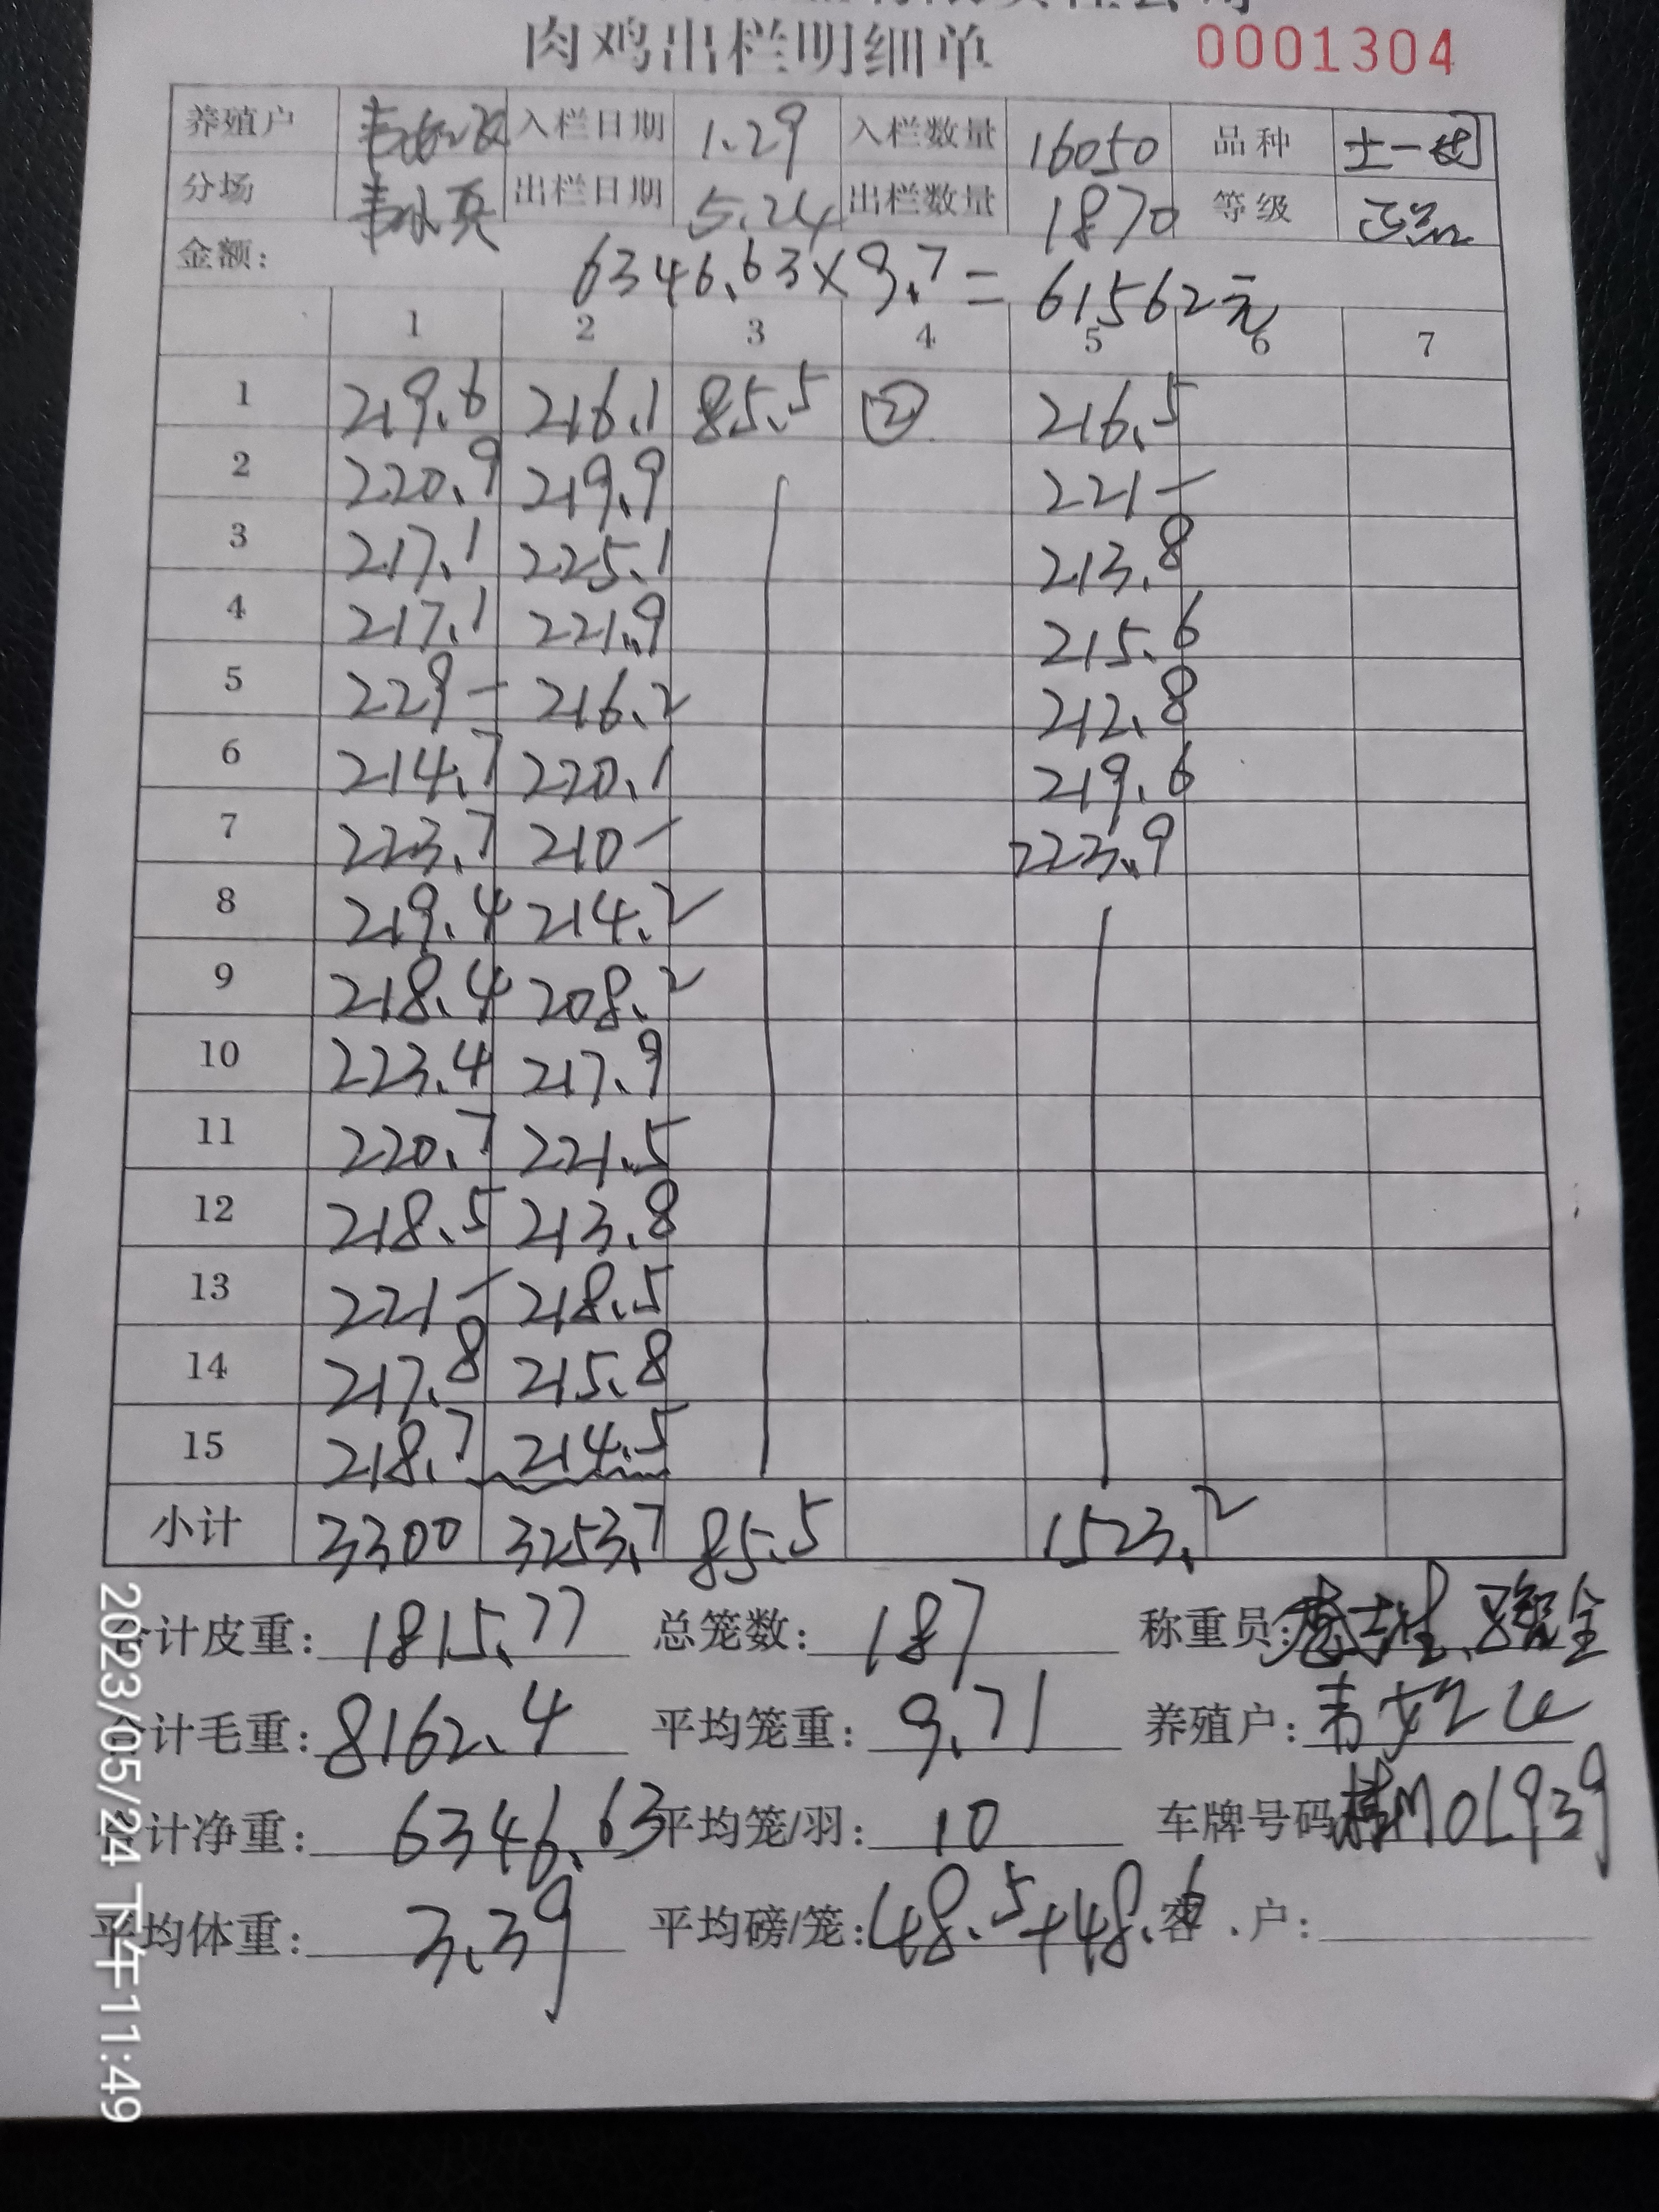 肉鸡出栏明细单 0001304
养殖户 入栏日期 1.29 入栏数量 16050 品种 土一
分场 出栏日期 5.24 出栏数量 1870 等级
金额: 6346.63×9.7=61562元
1 2 3 4 5 6 7
1 219.6 216.1 85.5 ② 216.5
2 220.9 219.9 221-
3 217.1 225.1 213.8
4 217.1 221.9 215.6
5 229- 216.2 212.8
6 214.7 220.1 219.6
7 223.7 210- 223.9
8 219.4 214.2
9 218.4 208.2
10 223.4 217.9
11 220.7 221.5
12 218.5 213.8
13 221- 218.5
14 217.8 215.8
15 218.7 214.5
小计 3300 3253.7 85.5 1523.2
合计皮重: 1815.77 总笼数: 187 称重员:
合计毛重: 8162.4 平均笼重: 9.71 养殖户:
合计净重: 6346.63 平均笼/羽: 10 车牌号码
平均体重: 3.39 平均磅/笼: 48.5+48.6 客户:
2023/05/24 下午11:49